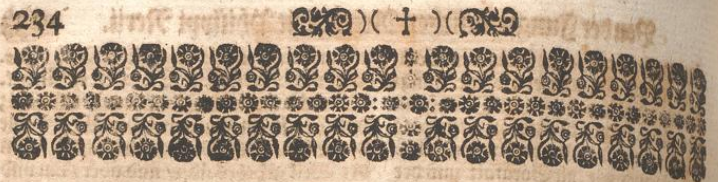 234 )( † )(